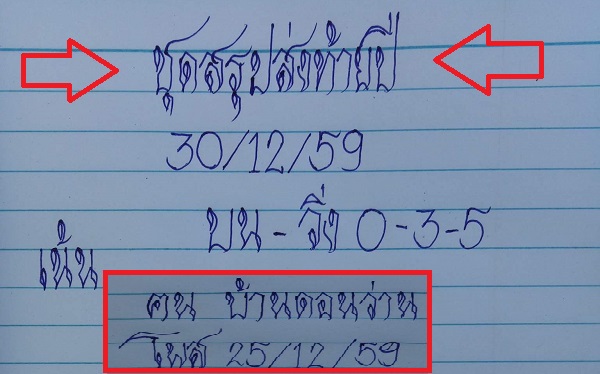 ชุดสรุปส่งท้ายปี
30/12/59
บน - วิ่ง 0-3-5
เน้น
คน บ้านดอนว่าน
โพส 25/12/59